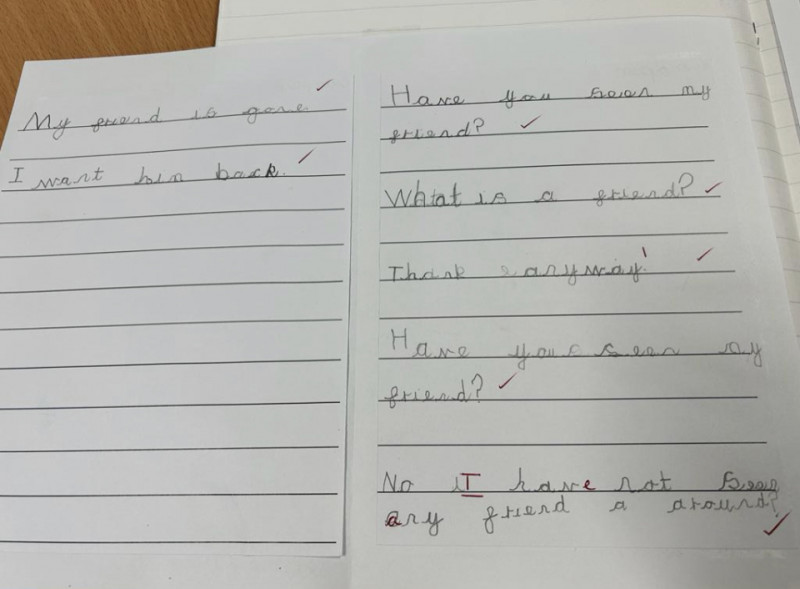 My friend is gone.
I want him back.
Have you seen my
friend?
What is a friend?
Thank anyway!
Have you seen my
friend?
No I have not seen
any friend a around?